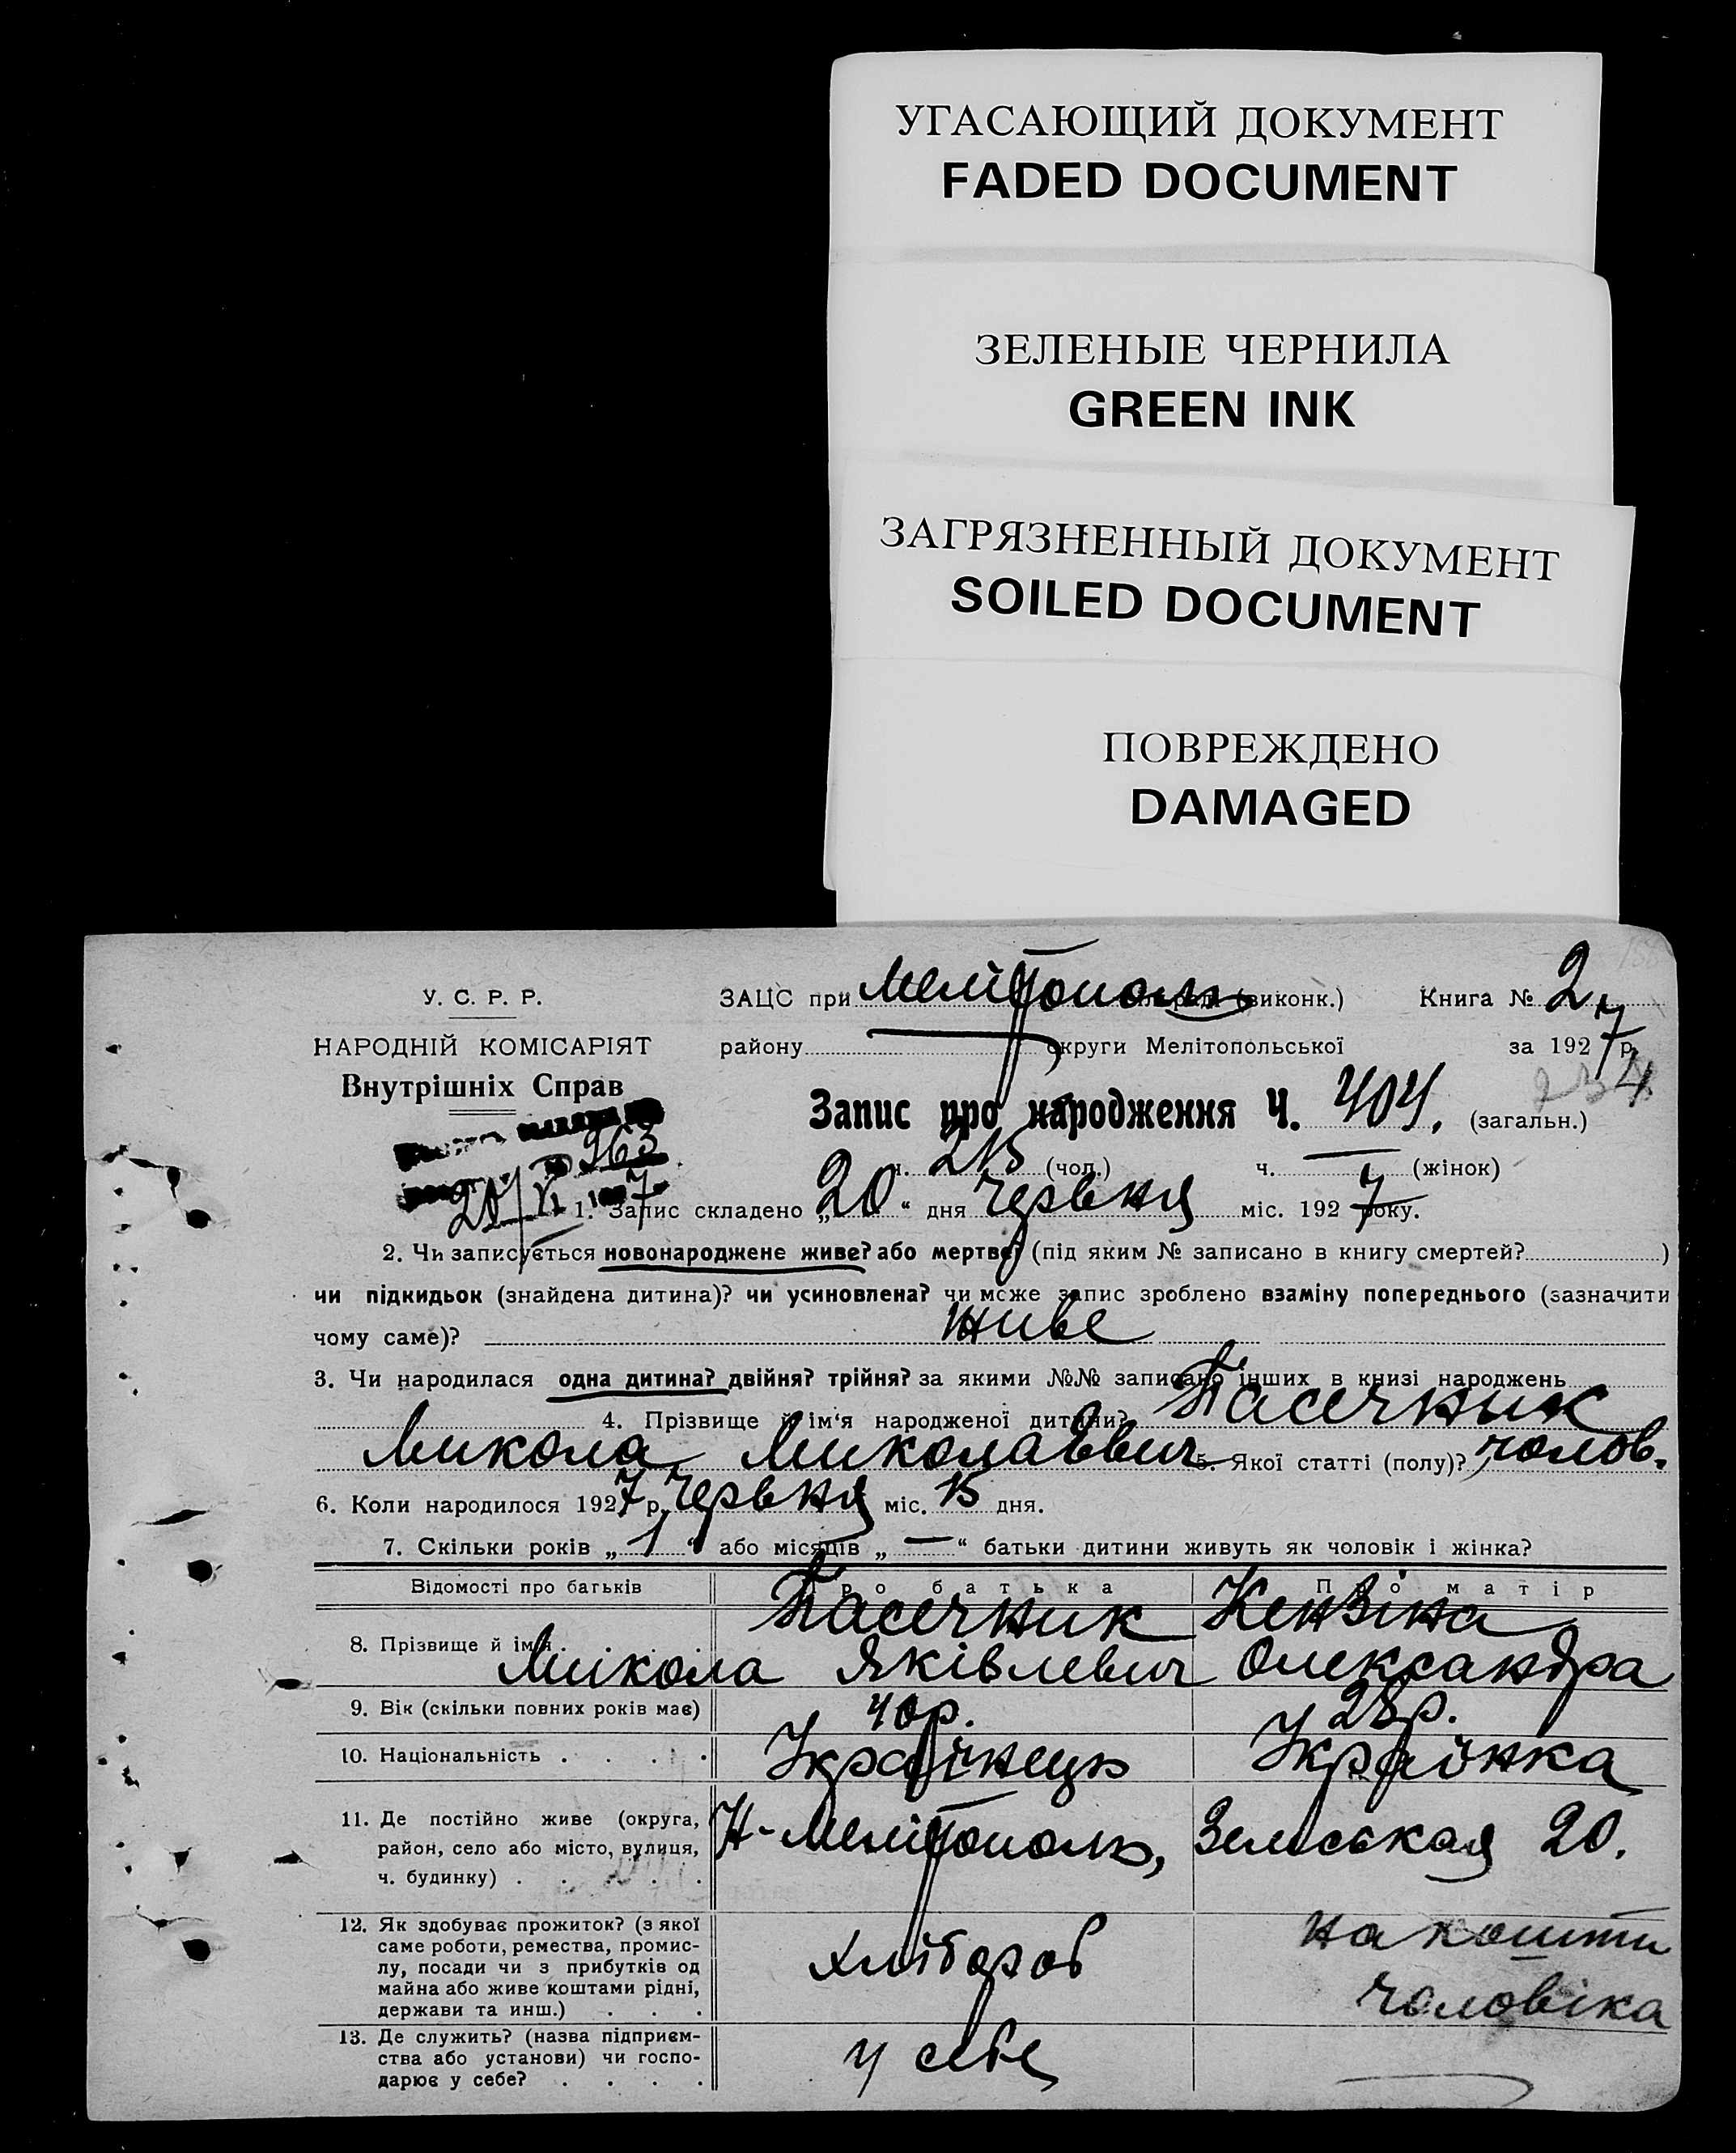 УГАСАЮЩИЙ ДОКУМЕНТ
FADED DOCUMENT
ЗЕЛЕНЫЕ ЧЕРНИЛА
GREEN INK
ЗАГРЯЗНЕННЫЙ ДОКУМЕНТ
SOILED DOCUMENT
ПОВРЕЖДЕНО
DAMAGED
У. С. Р. Р. ЗАЦС при Мелітополь (виконк.) Книга № 2
НАРОДНІЙ КОМІСАРІЯТ району округи Мелітопольської за 1927 р.
Внутрішніх Справ
Запис про народження Ч. 404. (загальн.)
963
ч. 215 (чол.) ч. — (жінок)
20/VI 1927
1. Запис складено „20“ дня Червня міс. 1927 року.
2. Чи записується новонароджене живе? або мертве? (під яким № записано в книгу смертей? )
чи підкидьок (знайдена дитина)? чи усиновлена? чи може запис зроблено взаміну попереднього (зазначити
чому саме)? живе
3. Чи народилася одна дитина? двійня? трійня? за якими №№ записано інших в книзі народжень
4. Прізвище й ім'я народженої дитини? Пасечник
Микола Миколаєвич 5. Якої статті (полу)? чолов.
6. Коли народилося 1927 р. Червня міс. 15 дня.
7. Скільки років „1“ або місяців „—“ батьки дитини живуть як чоловік і жінка?
Відомості про батьків Про батька Про матір
Пасечник Кензіна
8. Прізвище й ім'я . . . .
Микола Яківлевич Олександра
9. Вік (скільки повних років має) 40р. 28р.
10. Національність . . . . Українець Українка
11. Де постійно живе (округа,
район, село або місто, вулиця, Н-Мелітополь, Земськая 20.
ч. будинку) . . . . .
12. Як здобуває прожиток? (з якої
саме роботи, ремества, промис-
лу, посади чи з прибутків од
майна або живе коштами рідні,
держави та инш.) . . .
хлібороб
на кошти
чоловіка
13. Де служить? (назва підприєм-
ства або установи) чи госпо-
дарює у себе? . . . .
у себе —